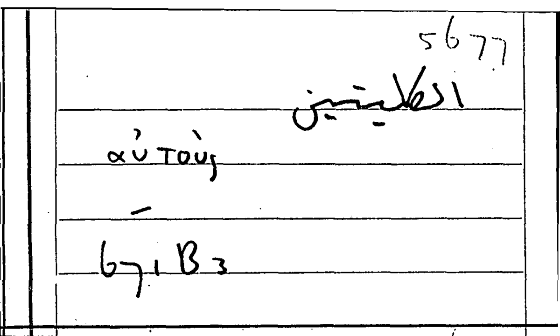 5677
الكليتين
αὐτοὺς
–
671 B 3